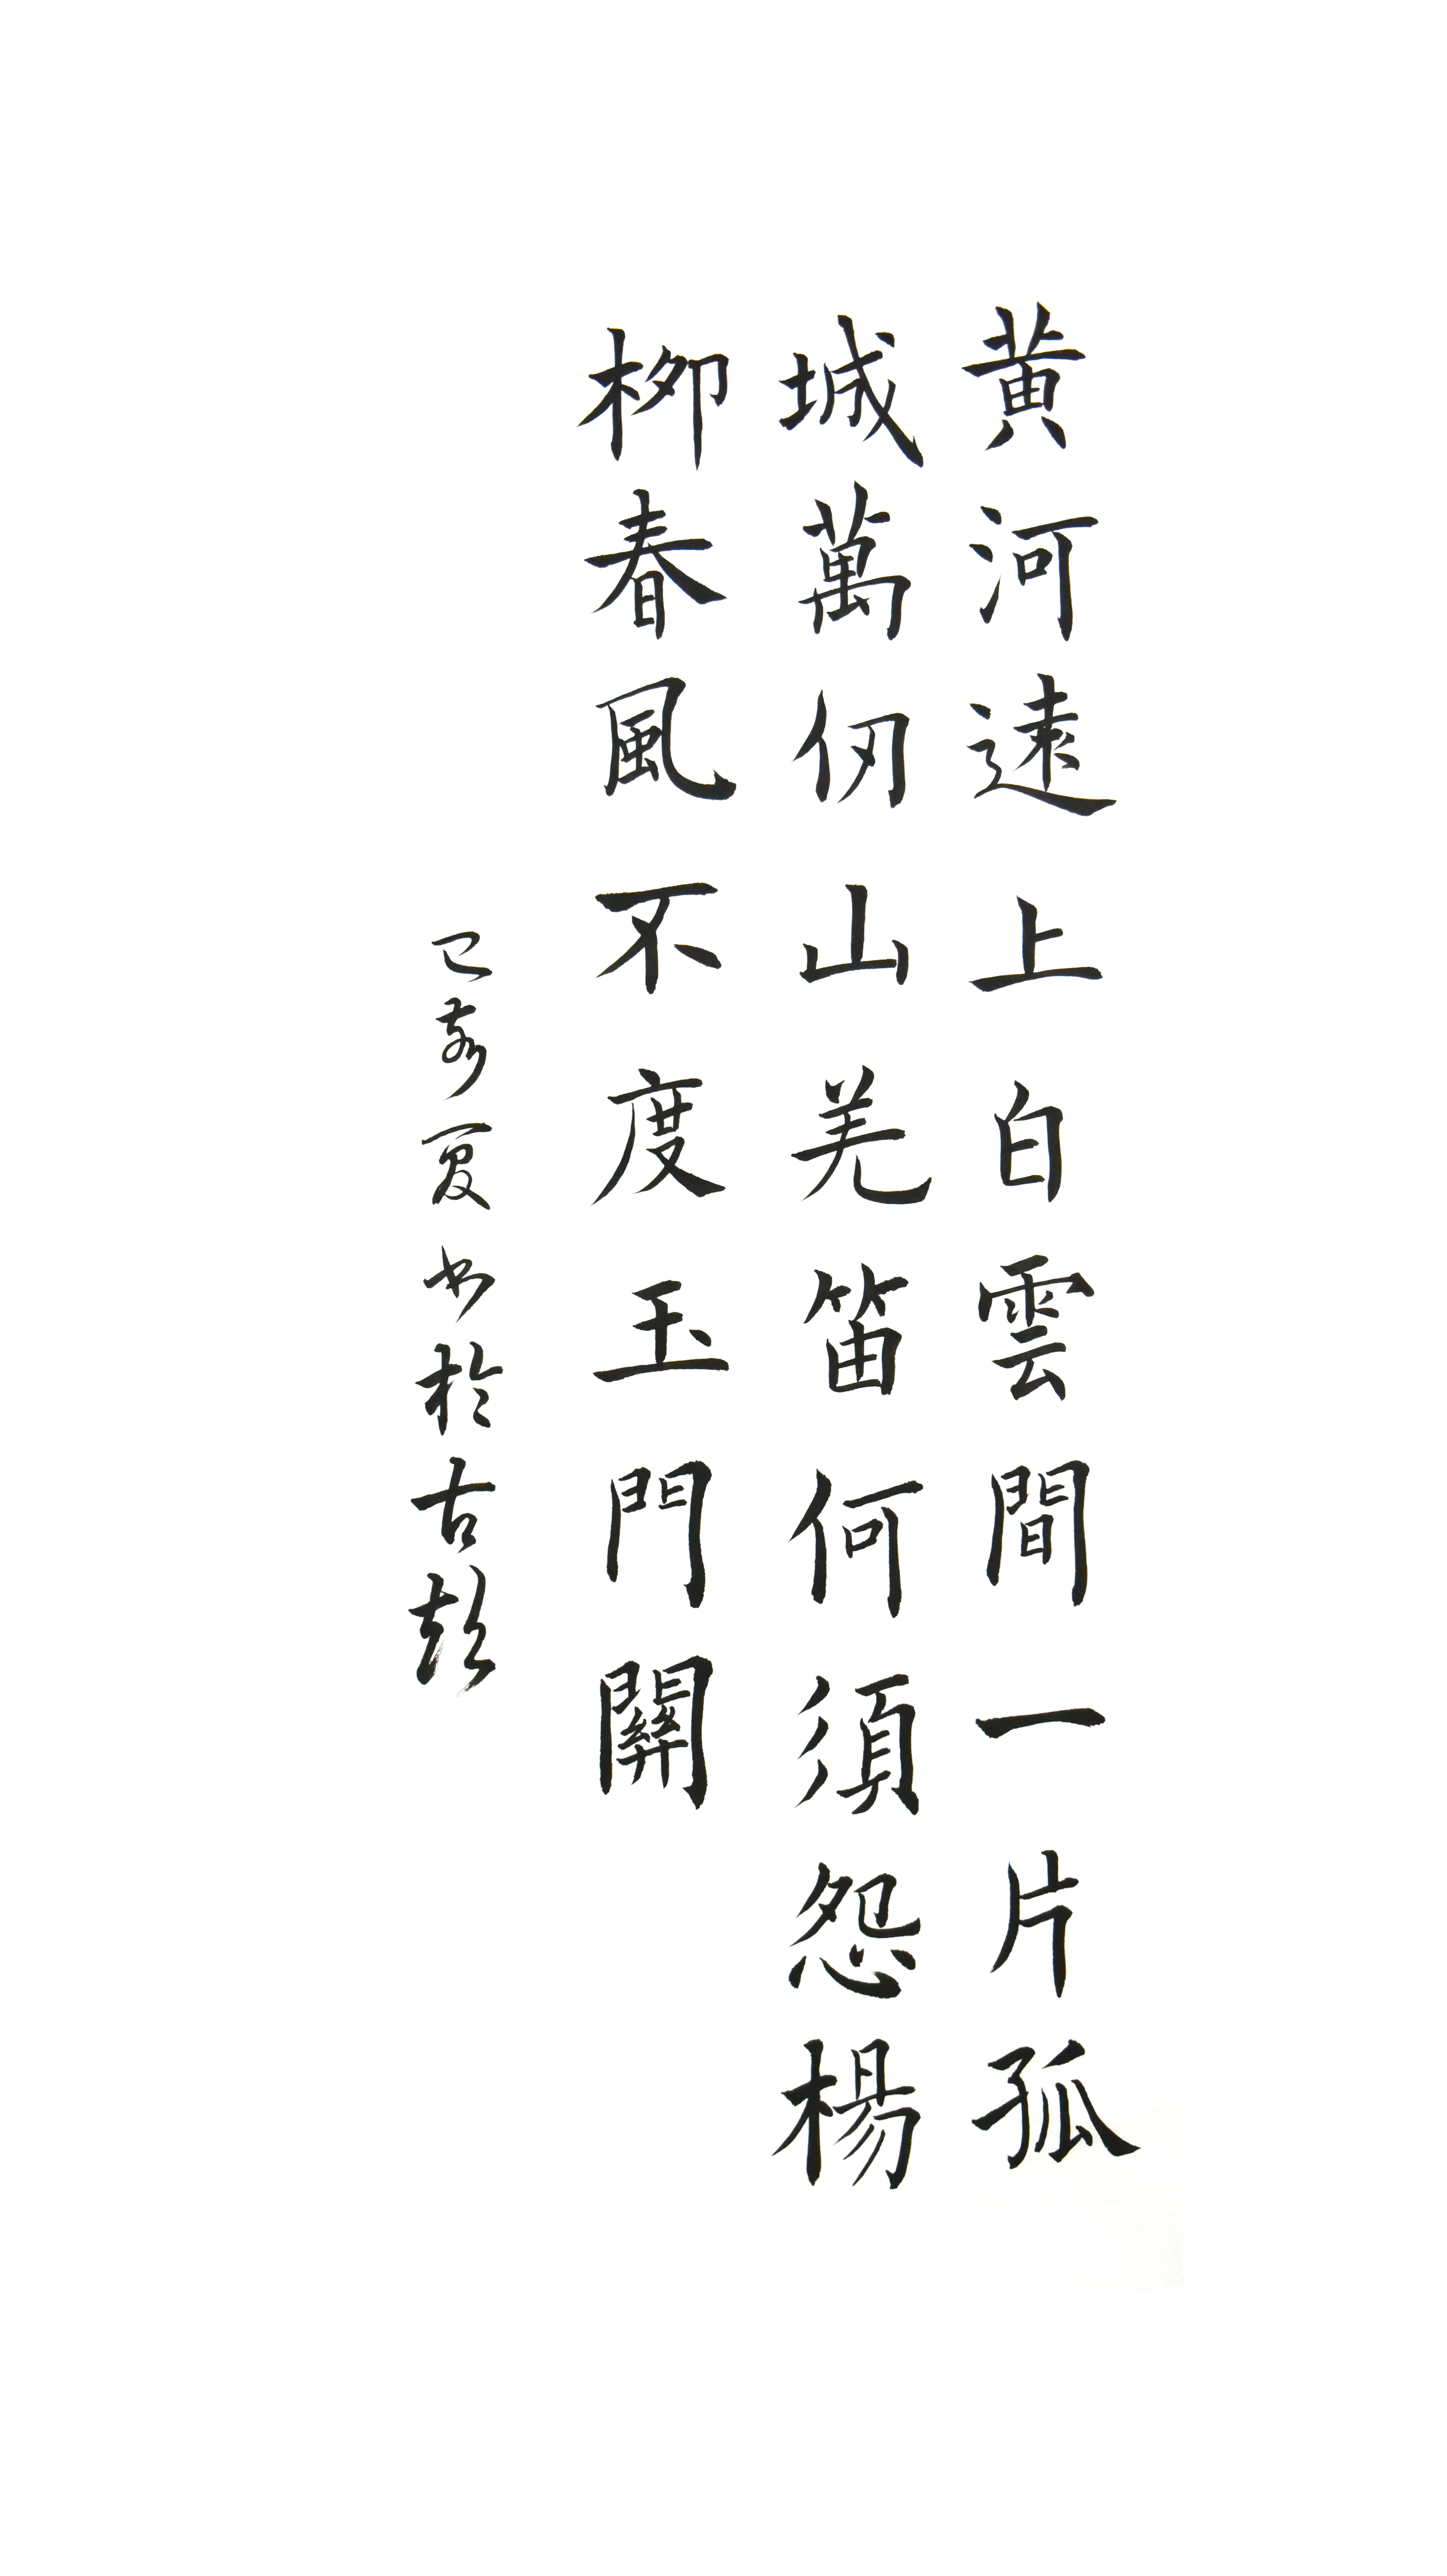 黄河遠上白雲間一片孤
城萬仞山羌笛何須怨楊
柳春風不度玉門關
己亥夏書於古彭